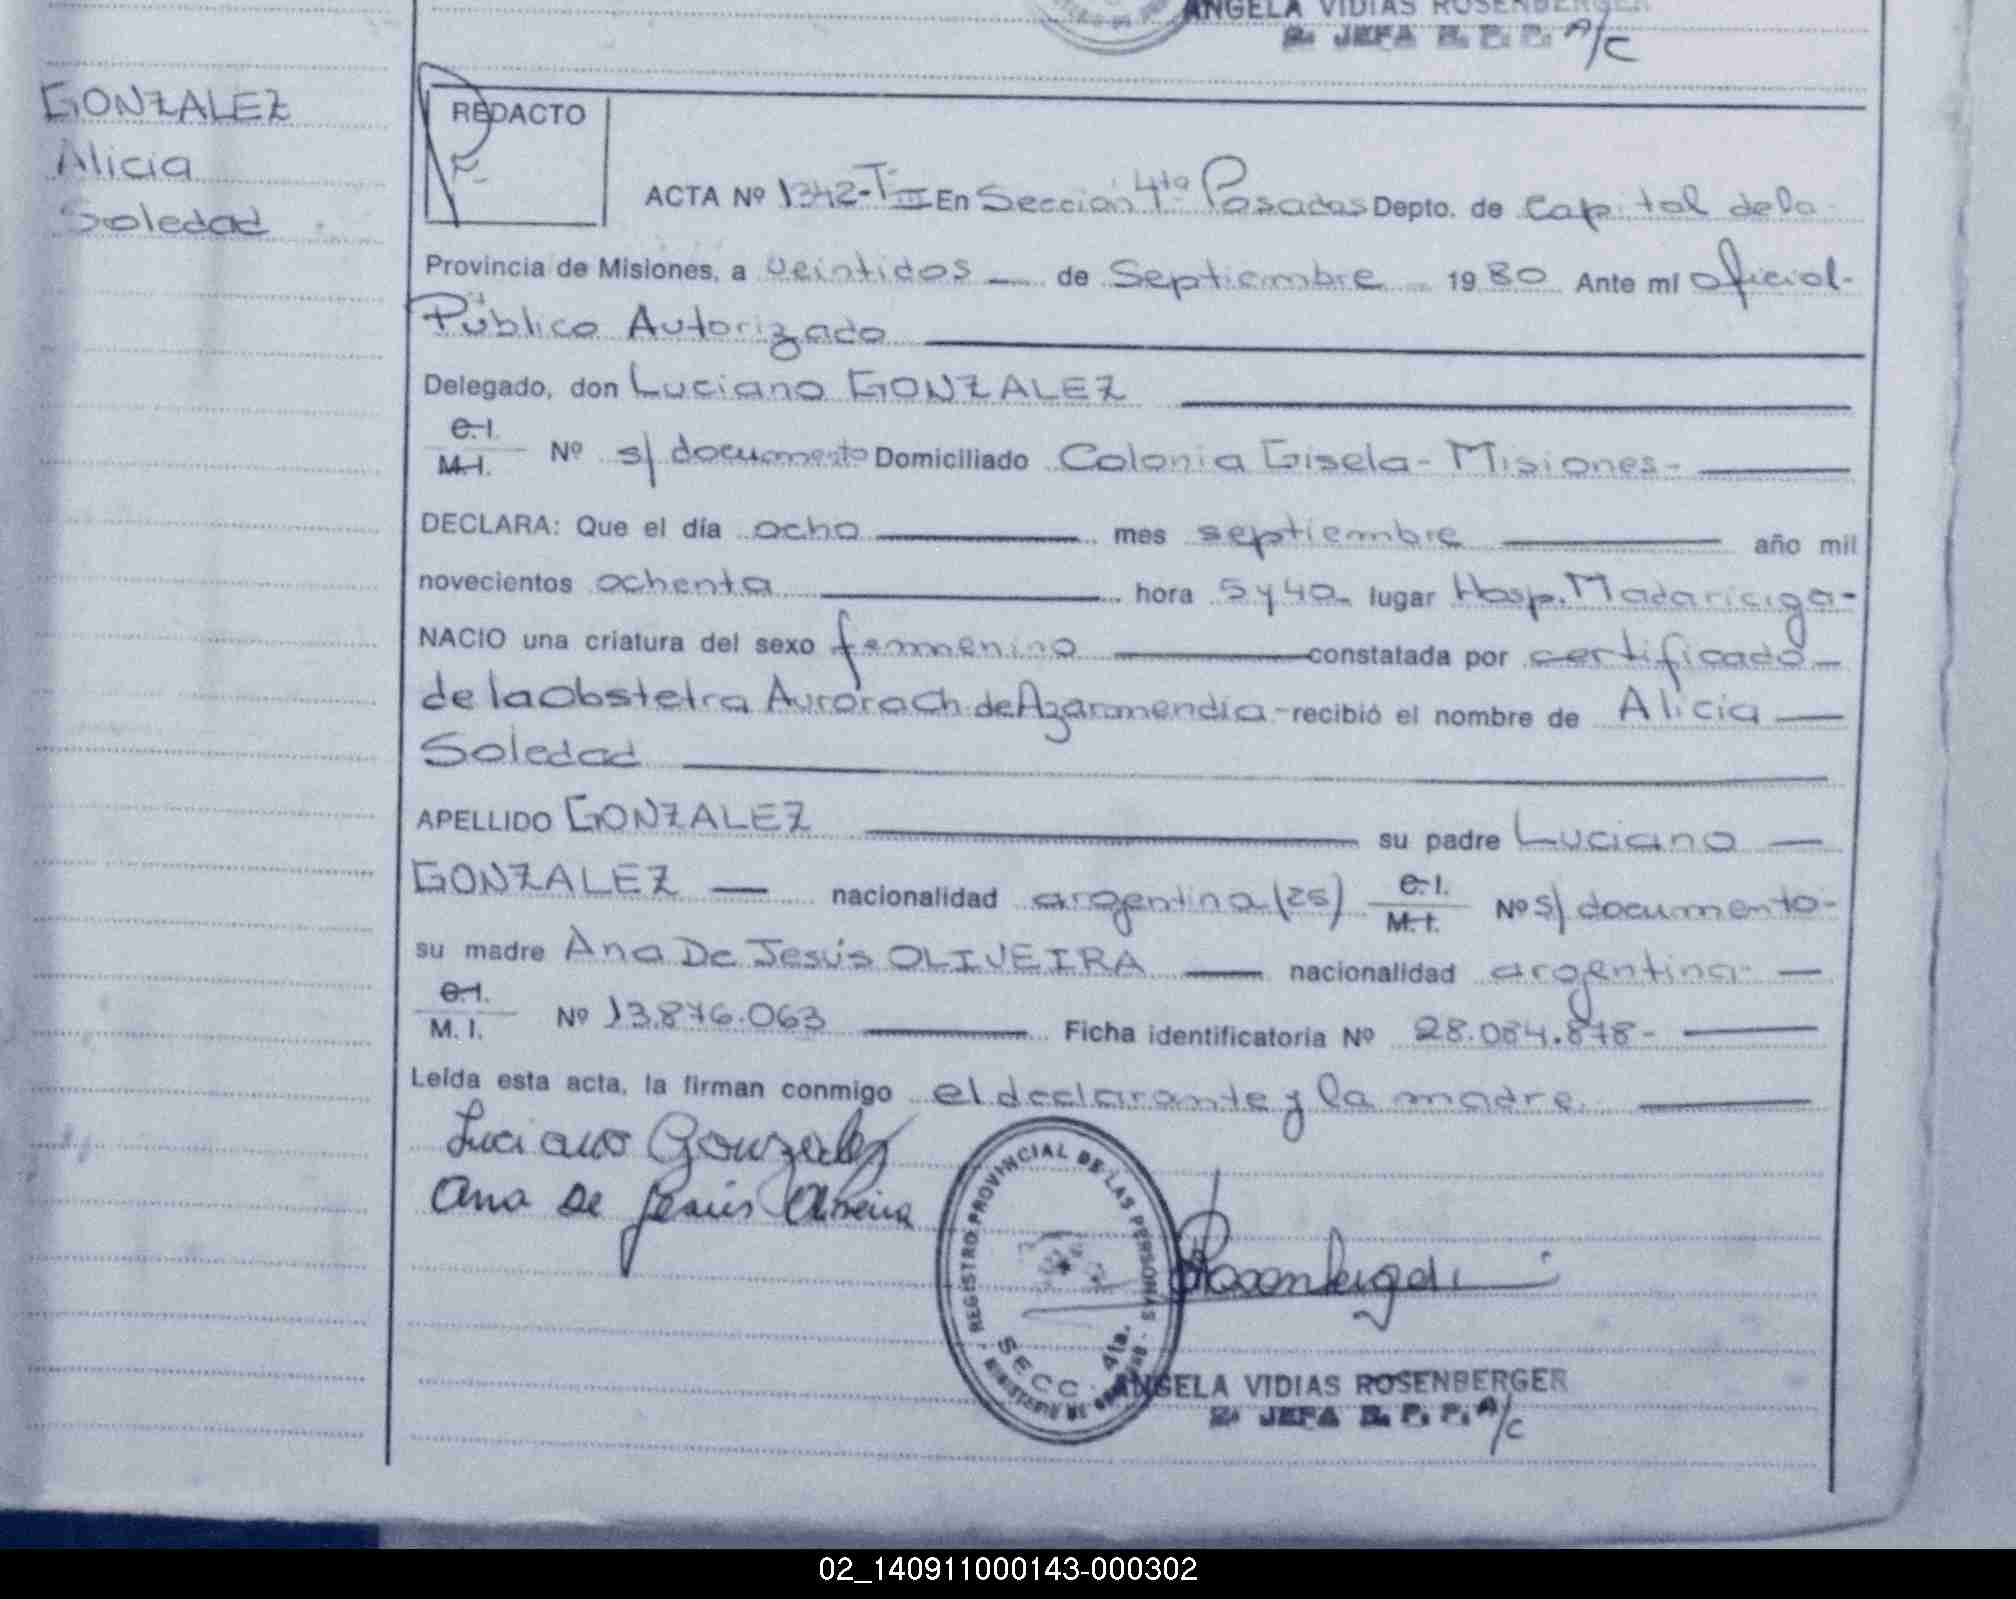 ANGELA VIDIAS ROSENBERGER
2ª JEFA R. P. P. A/C
GONZALEZ
Alicia
Soledad
REDACTO
ACTA Nº 1342-T III En Sección 4ta Posadas Depto. de Capital de la
Provincia de Misiones, a veintidos de Septiembre 1980 Ante mi oficial-
Público Autorizado
Delegado, don Luciano GONZALEZ
C.I.
M.I. Nº s/documento Domiciliado Colonia Gisela - Misiones-
DECLARA: Que el día ocho mes septiembre año mil
novecientos ochenta hora 5 y 40 lugar Hosp. Madariaga-
NACIO una criatura del sexo femenino constatada por certificado
de la Obstetra Aurora Ch. de Azarmendia - recibió el nombre de Alicia
Soledad
APELLIDO GONZALEZ su padre Luciano
GONZALEZ nacionalidad argentina (25) C.I.
M.I. Nº s/documento-
su madre Ana De Jesús OLIVEIRA nacionalidad argentina-
C.I.
M.I. Nº 13.876.063 Ficha identificatoria Nº 28.084.878-
Leída esta acta, la firman conmigo el declarante y la madre.
Luciano Gonzalez
Ana De Jesús Oliveira
REGISTRO PROVINCIAL DE LAS PERSONAS
SECC. 4ta.
MINISTERIO DE GOBIERNO
ANGELA VIDIAS ROSENBERGER
2ª JEFA R. P. P. A/C
02_140911000143-000302